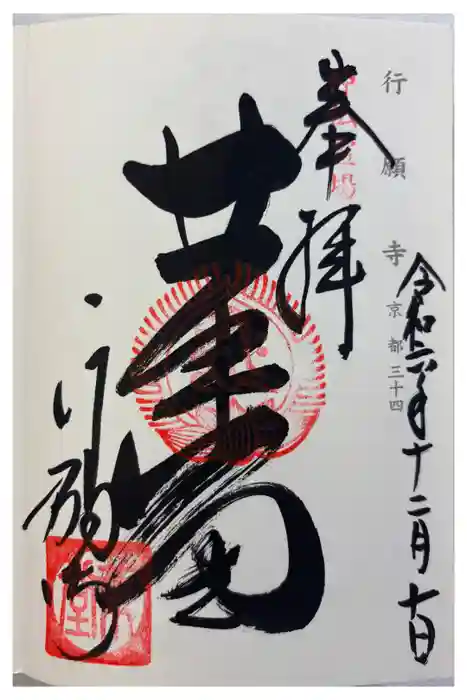 令和六年十二月十日
行願寺 京都三十四
奉拝
革堂
行願寺